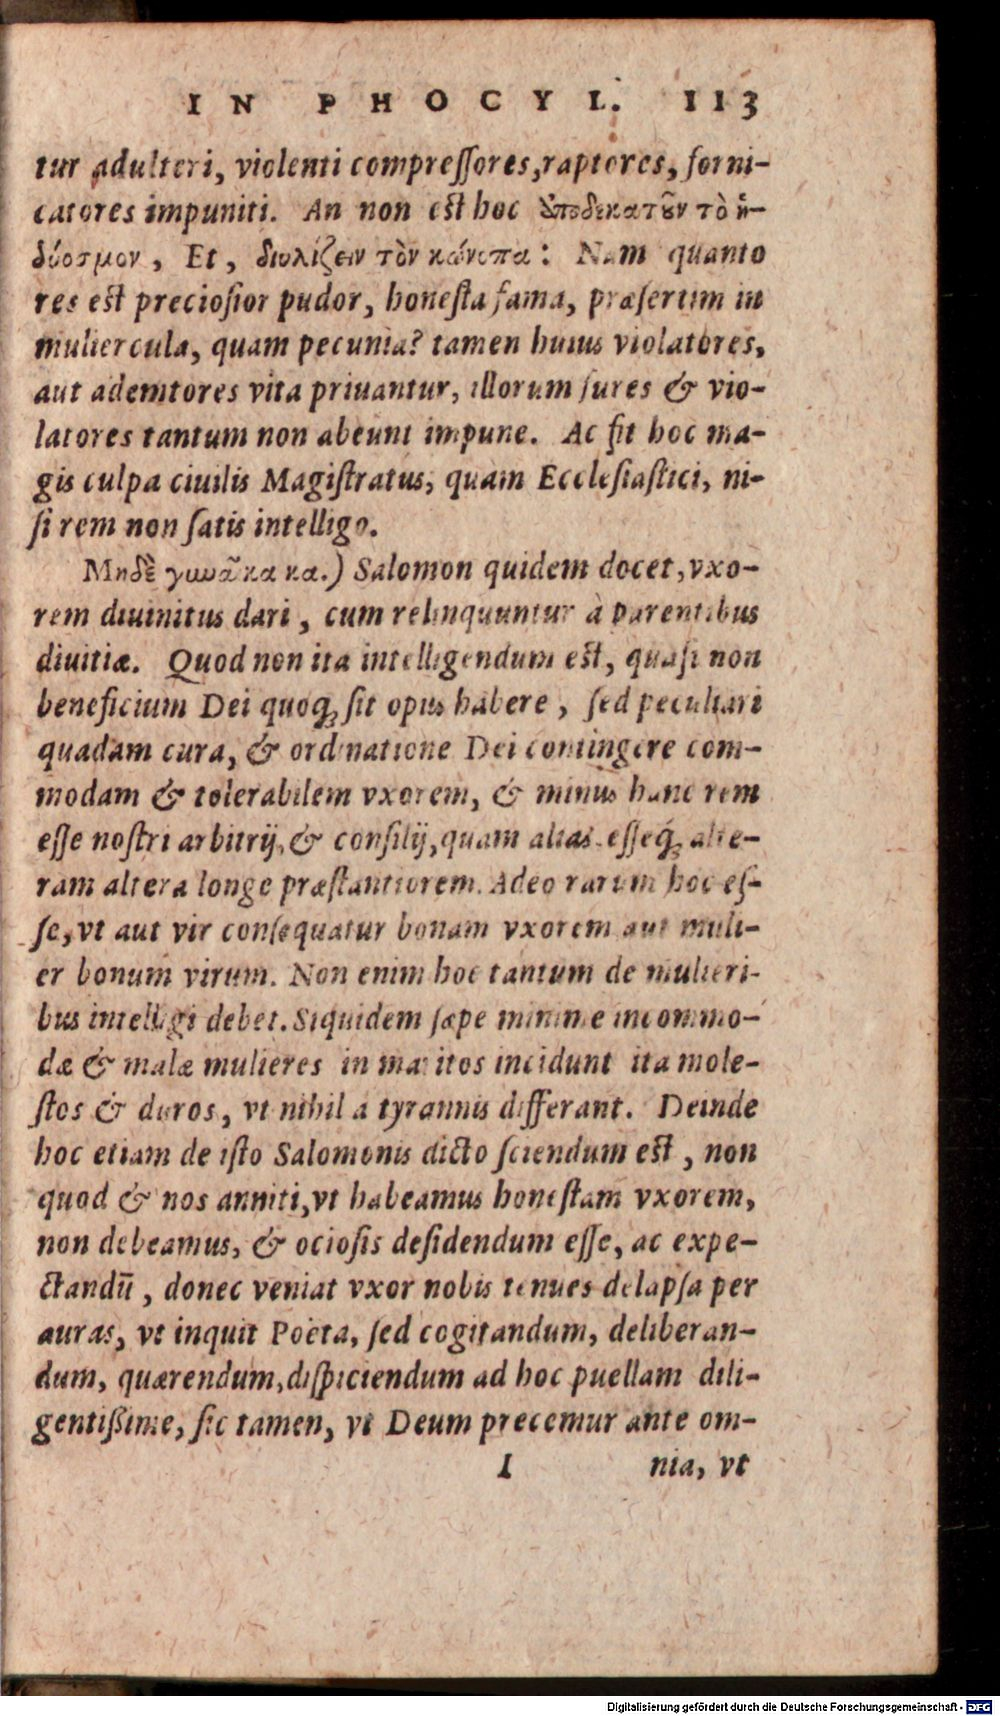 IN PHOCYL. 113
tur adulteri, violenti compreſſores, raptores, forni-
catores impuniti. An non eſt hoc ἀποδεκατοῦν τὸ ἡ-
δύοσμον, Et, διυλίζειν τὸν κώνωπα: Nam quanto
res eſt precioſior pudor, honeſta fama, præſertim in
muliercula, quam pecunia? tamen huius violatores,
aut ademtores vita priuantur, illorum fures & vio-
latores tantum non abeunt impune. Ac fit hoc ma-
gis culpa ciuilis Magiſtratus, quam Eccleſiaſtici, ni-
ſi rem non ſatis intelligo.
Μηδὲ γυναῖκα κα.) Salomon quidem docet, vxo-
rem diuinitus dari, cum relinquuntur à parentibus
diuitiæ. Quod non ita intelligendum eſt, quaſi non
beneficium Dei quoq; ſit opus habere, ſed peculiari
quadam cura, & ordinatione Dei contingere com-
modam & tolerabilem vxorem, & minus hanc rem
eſſe noſtri arbitrij, & conſilij, quam alias. eſſeq; alte-
ram altera longe præſtantiorem. Adeo rarum hoc eſ-
ſe, vt aut vir conſequatur bonam vxorem aut muli-
er bonum virum. Non enim hoc tantum de mulieri-
bus intelligi debet. Siquidem ſæpe minime incommo-
dæ & malæ mulieres in maritos incidunt ita mole-
ſtos & duros, vt nihil a tyrannis differant. Deinde
hoc etiam de iſto Salomonis dicto ſciendum eſt, non
quod & nos anniti, vt habeamus honeſtam vxorem,
non debeamus, & ocioſis deſidendum eſſe, ac expe-
ctandū, donec veniat vxor nobis tenues delapſa per
auras, vt inquit Poëta, ſed cogitandum, deliberan-
dum, quærendum, diſpiciendum ad hoc puellam dili-
gentiſsime, ſic tamen, vt Deum precemur ante om-
I nia, vt
Digitalisierung gefördert durch die Deutsche Forschungsgemeinschaft - DFG